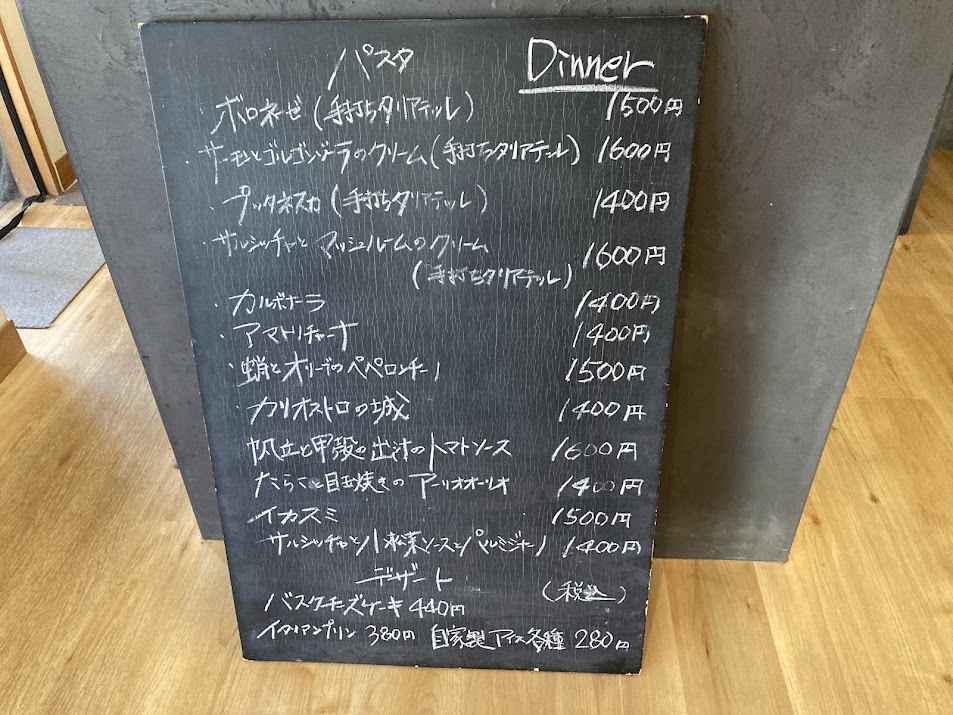 パスタ Dinner
・ボロネーゼ(手打ちタリアテッレ) 1500円
・サーモンとゴルゴンゾーラのクリーム(手打ちタリアテッレ) 1600円
・プッタネスカ(手打ちタリアテッレ) 1400円
・サルシッチャとマッシュルームのクリーム
(手打ちタリアテッレ) 1600円
・カルボナーラ 1400円
・アマトリチャーナ 1400円
・蛸とオリーブのペペロンチーノ 1500円
・カリオストロの城 1400円
帆立と甲殻の出汁のトマトソース 1600円
たらこと目玉焼きのアーリオオーリオ 1400円
イカスミ 1500円
サルシッチャと小松菜ソースとパルミジャーノ 1400円
デザート (税込)
バスクチーズケーキ 440円
イタリアンプリン 380円 自家製アイス各種 280円